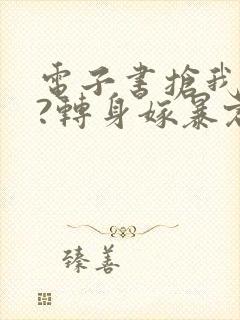 電子書搶我
?轉身嫁暴
臻善